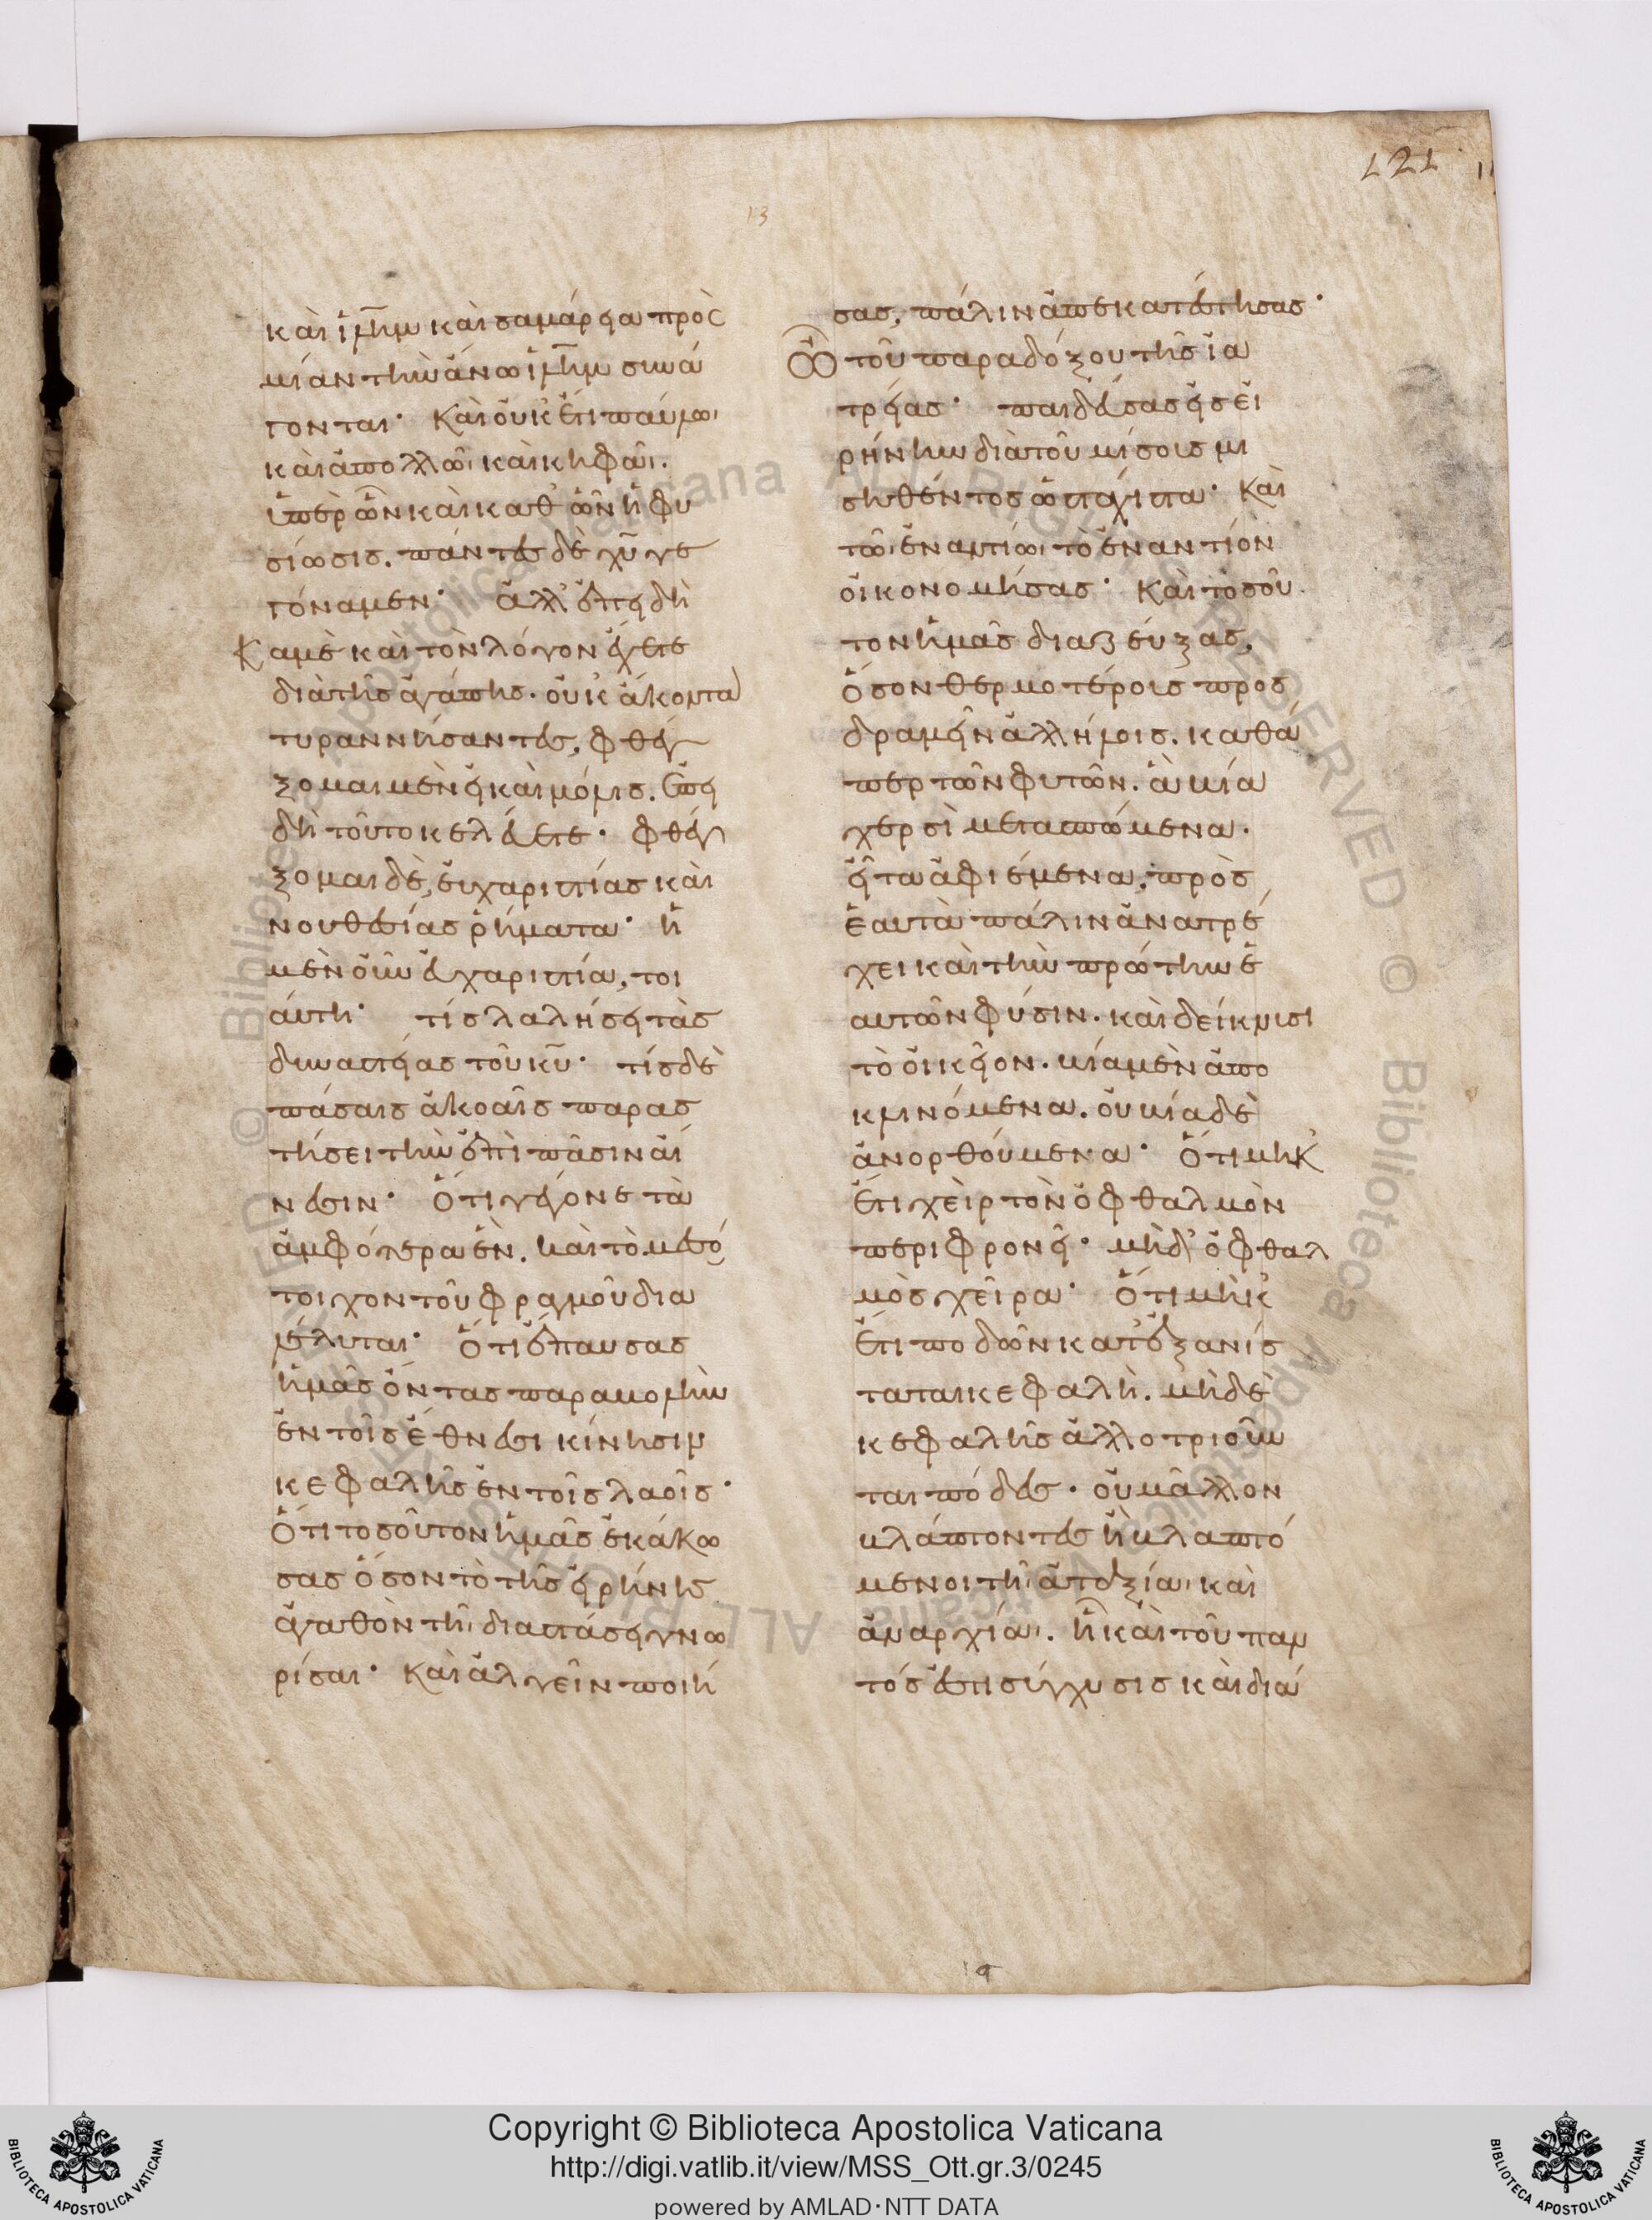 121
13
καὶ ἱλῆμ καὶ σαμάρεια πρὸς
μίαν τὴν ἄνω ἱλῆμ συνά
γονται· Καὶ οὐκ ἔτι παύλω,
καὶ ἀπολλῶι καὶ κηφᾶι.
ὑπὲρ ὧν καὶ καθ' ὧν ἡ φυ
σίωσις. πάντες δὲ χῦ γε
γόναμεν· ἀλλ' ἐπειδὴ
Καμὲ καὶ τὸν λόγον ἔχετε
διὰ τῆς ἀγάπης. οὐκ ἄκοντα
τυραννήσαντες, φθέγ
ξομαι μὲν εἰ καὶ μόλις. Ἐπει
δὴ τοῦτο κελεύετε· φθέγ
ξομαι δὲ, εὐχαριστίας καὶ
νουθεσίας ῥήματα· ἡ
μὲν οὖν εὐχαριστία, τοι
αύτη· τίς λαλήσει τὰς
δυναστείας τοῦ κῦ· τίς δὲ
πάσαις ἀκοαῖς παρασ
τήσει τὴν ἐπὶ πᾶσιν αἴ
νεσιν· Ὅτι γέγονε τὰ
ἀμφότερα ἕν. καὶ τὸ μεσό
τοιχον τοῦ φραγμοῦ δια
λέλυται· Ὅτι ἔπαυσας
ἡμᾶς ὄντας παραβολὴν
ἐν τοῖς ἔθνεσι κίνησιν
κεφαλῆς ἐν τοῖς λαοῖς·
Ὅτι τοσοῦτον ἡμᾶς ἐκάκω
σας ὅσον τὸ τῆς εἰρήνης
ἀγαθὸν τῆι διαστάσει γνω
ρίσαι· Καὶ ἀλγεῖν ποιή
σας, πάλιν ἀπεκατέστησας·
Ὢ τοῦ παραδόξου τῆς ἰα
τρείας· παιδεύσας εἰς εἰ
ρήνην διὰ τοῦ μίσους μι
σηθέντος ὡς τάχιστα· Καὶ
τῶι ἐναντίωι τὸ ἐναντίον
οἰκονομήσας· Καὶ τοσοῦ
τον ἡμᾶς διαζεύξας,
ὅσον θερμοτέροις προσ
δραμεῖν ἀλλήλοις. καθά
περ τῶν φυτῶν. ἃ βία
χερσὶ μετασπώμενα.
εἶτα ἀφιέμενα, πρὸς
ἑαυτὰ πάλιν ἀνατρέ
χει καὶ τὴν πρώτην ἑ
αυτῶν φύσιν. καὶ δείκνυσι
τὸ οἰκεῖον. βία μὲν ἀπο
κλινόμενα. οὐ βία δὲ
ἀνορθούμενα· Ὅτι μηκ
έτι χεὶρ τὸν ὀφθαλμὸν
περιφρονεῖ· μὴδ' ὀφθαλ
μὸς χεῖρα· Ὅτι μὴκ
έτι ποδῶν κατεξανίσ
ταται κεφαλὴ. μὴδὲ
κεφαλῆς ἀλλοτριοῦν
ται πόδες. οὐ μᾶλλον
βλάπτοντες ἢ βλαπτό
μενοι τῆι ἀταξίαι καὶ
ἀναρχίαι. ἣ καὶ τοῦ παν
τός ἐστι σύγχυσις καὶ διά
Copyright © Biblioteca Apostolica Vaticana
http://digi.vatlib.it/view/MSS_Ott.gr.3/0245
powered by AMLAD·NTT DATA
BIBLIOTECA APOSTOLICA VATICANA
BIBLIOTECA APOSTOLICA VATICANA